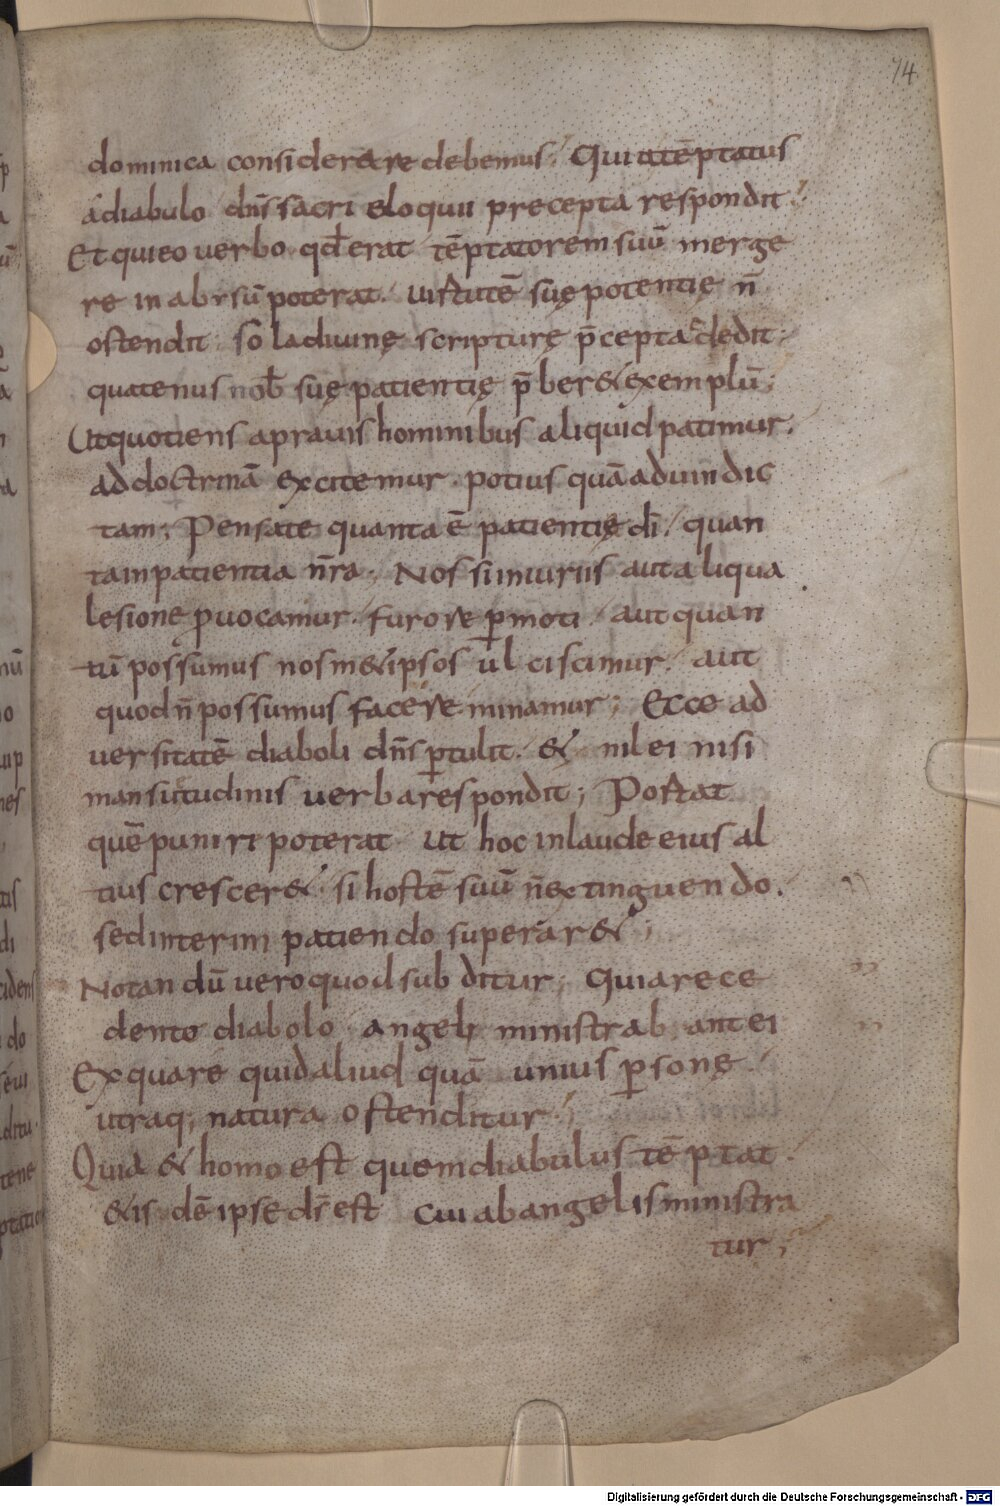 74
dominica considerare debemus. Quia tēptatus
a diabulo dn̄s sacri eloquii precepta respondit.
Et qui eo verbo qd̄ erat tēptatorem suū merge
re in abisū poterat. uirtutē suę potentię n̄
ostendit. sola diuinę scripturę p̄cepta dedit;
quatenus nob̄ suę patientię p̄ber& exemplū;
Ut quotiens a prauis hominibus aliquid patimur.
ad doctrinā excitemur. potius quā ad uindic
tam; Pensate quanta ē patientię dī. quan
ta inpatientia n̄ra. Nos si iniuriis aut aliqua
lesione ꝓuocamur. furore ꝑmoti. aut quan
tū possumus nosm&ipsos ulciscimur. aut
quod n̄ possumus facere minamur; Ecce ad
uersitatē diaboli dn̄s ꝑtulit. & nil ei nisi
mansuetudinis uerba respondit; Portat
quē punire poterat ut hoc in laude eius al
tius crescer& si hostē suū n̄ extinguendo.
sed interim patiendo superar&;
Notandū uero quod subditur; Quia rece
dente diabolo. angeli ministrabant ei
Ex qua re quid aliud quā unius ꝑsonę
utraq; natura ostenditur;
Quia & homo est quem diabulus tēptat.
& isdē ipse dī est cui ab angelis ministra
tur;
Digitalisierung gefördert durch die Deutsche Forschungsgemeinschaft - DFG